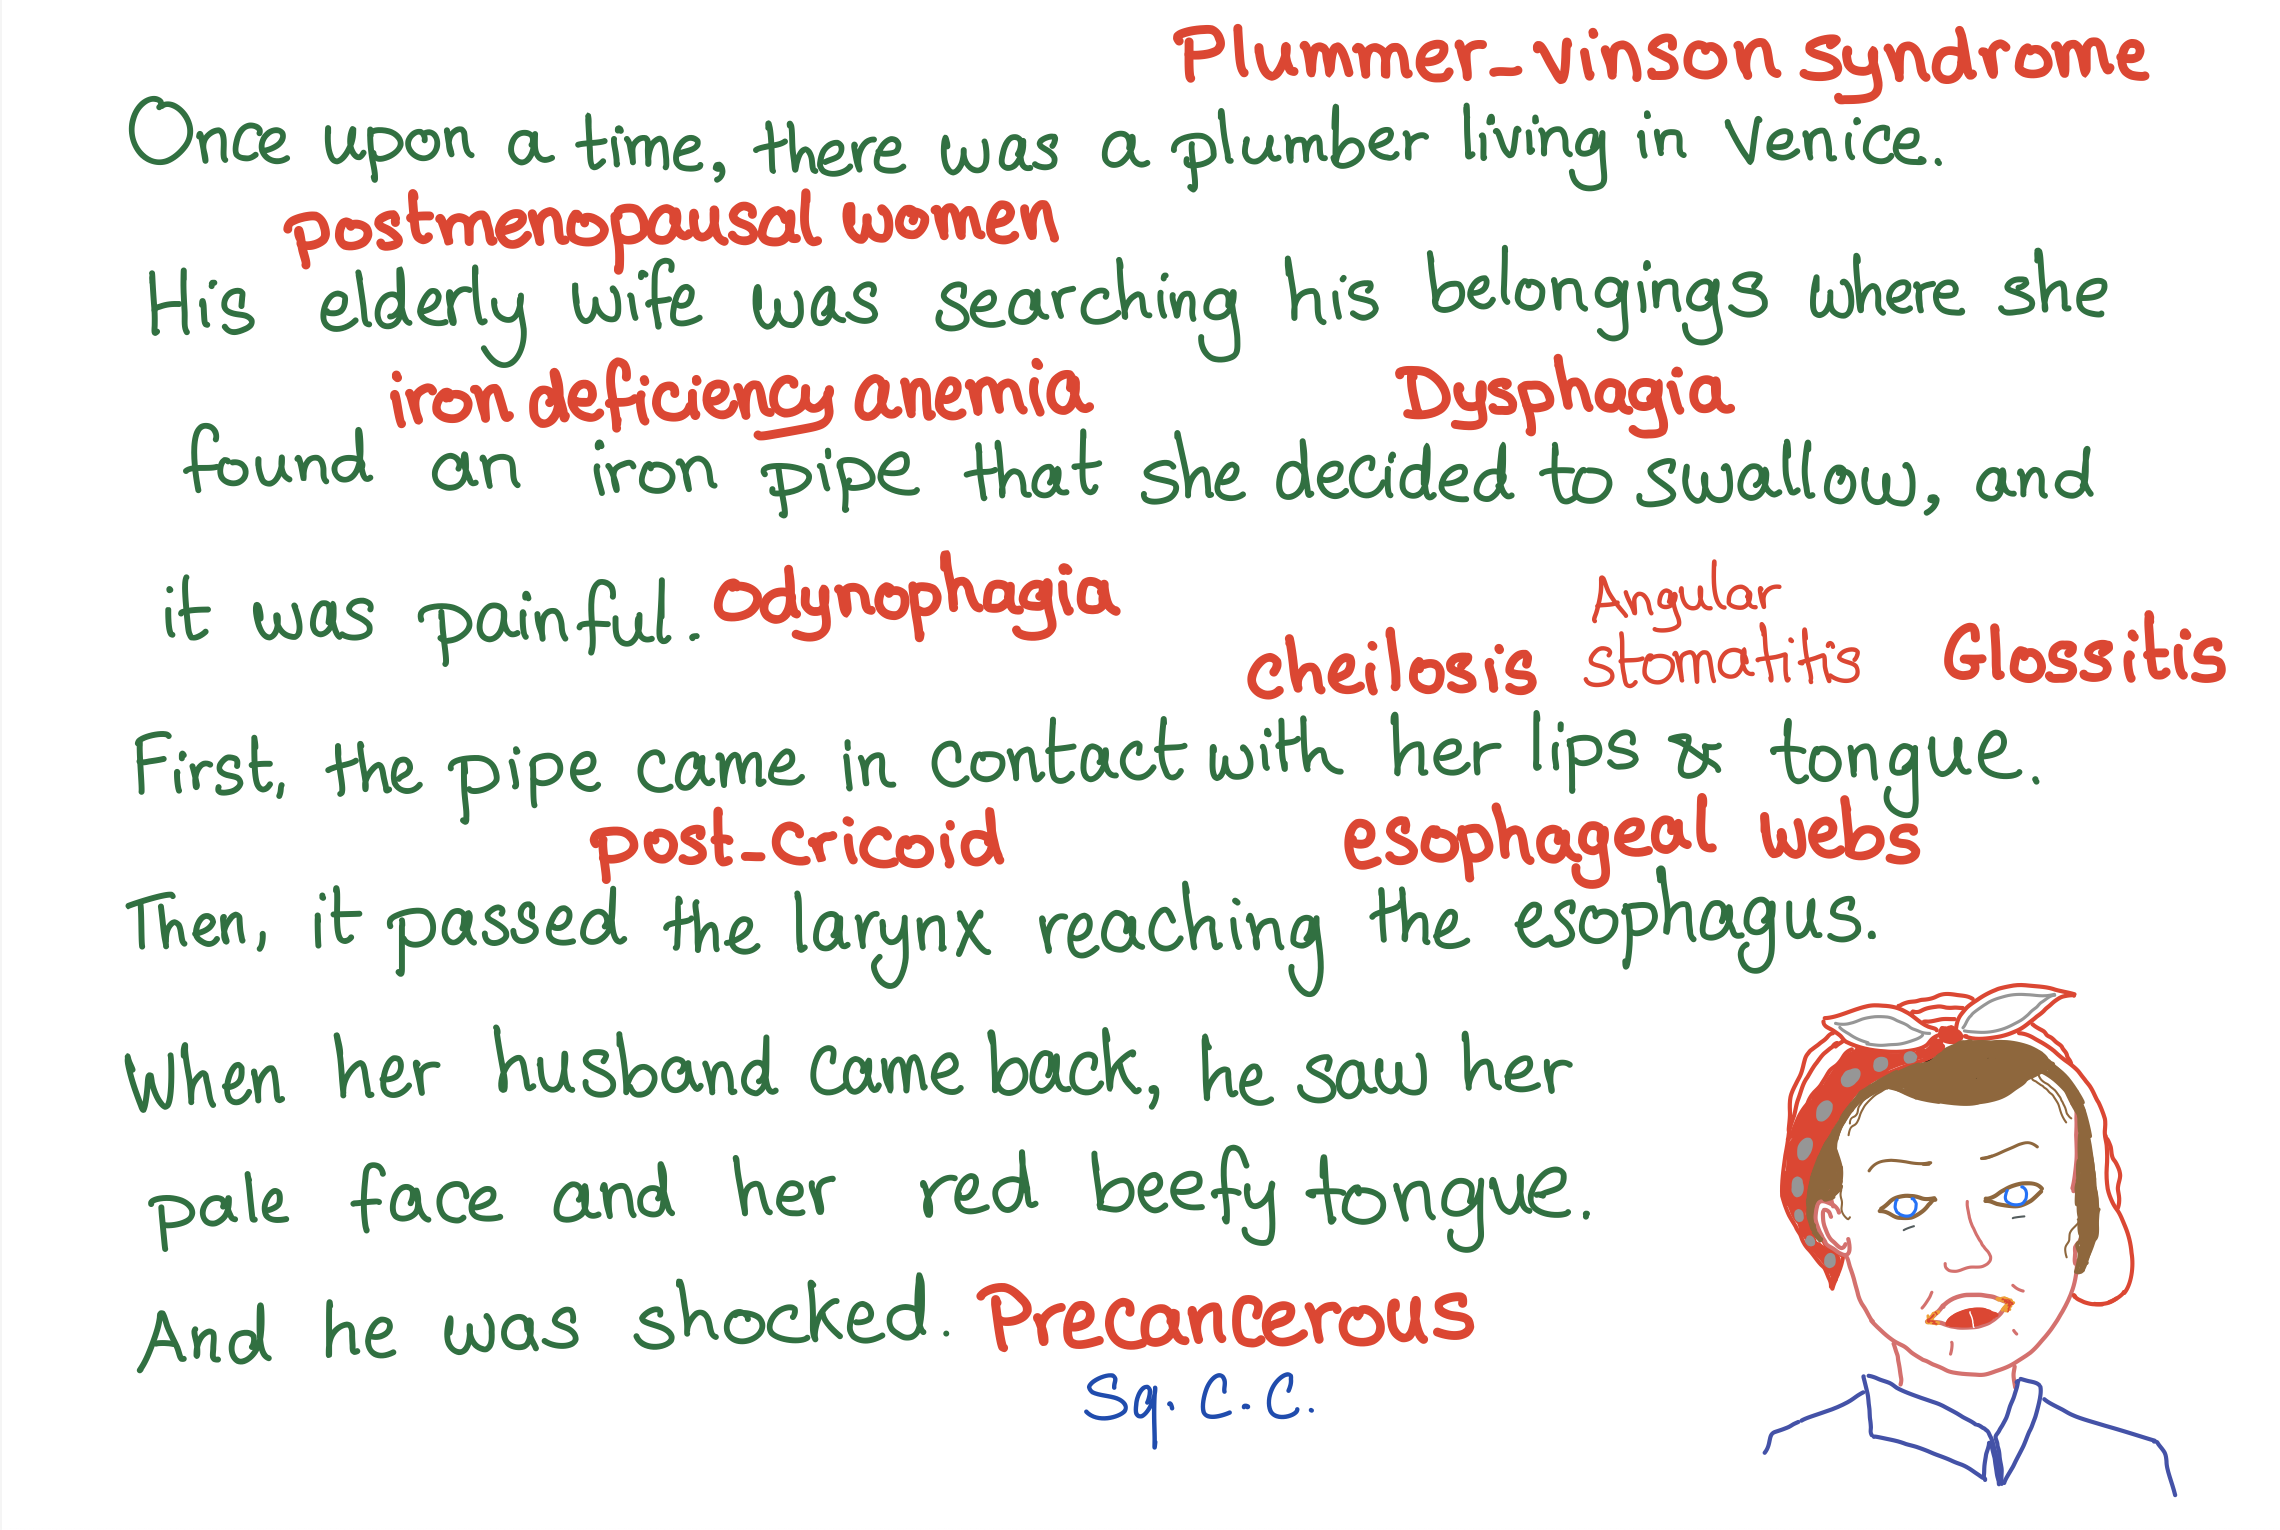 Plummer-vinson syndrome
Once upon a time, there was a plumber living in Venice.
postmenopausal women
His elderly wife was searching his belongings where she
iron deficiency anemia Dysphagia
found an iron pipe that she decided to swallow, and
it was painful. Odynophagia
Angular
cheilosis stomatitis Glossitis
First, the pipe came in contact with her lips & tongue.
post-cricoid esophageal webs
Then, it passed the larynx reaching the esophagus.
When her husband came back, he saw her
pale face and her red beefy tongue.
And he was shocked. Precancerous
Sq. C.C.